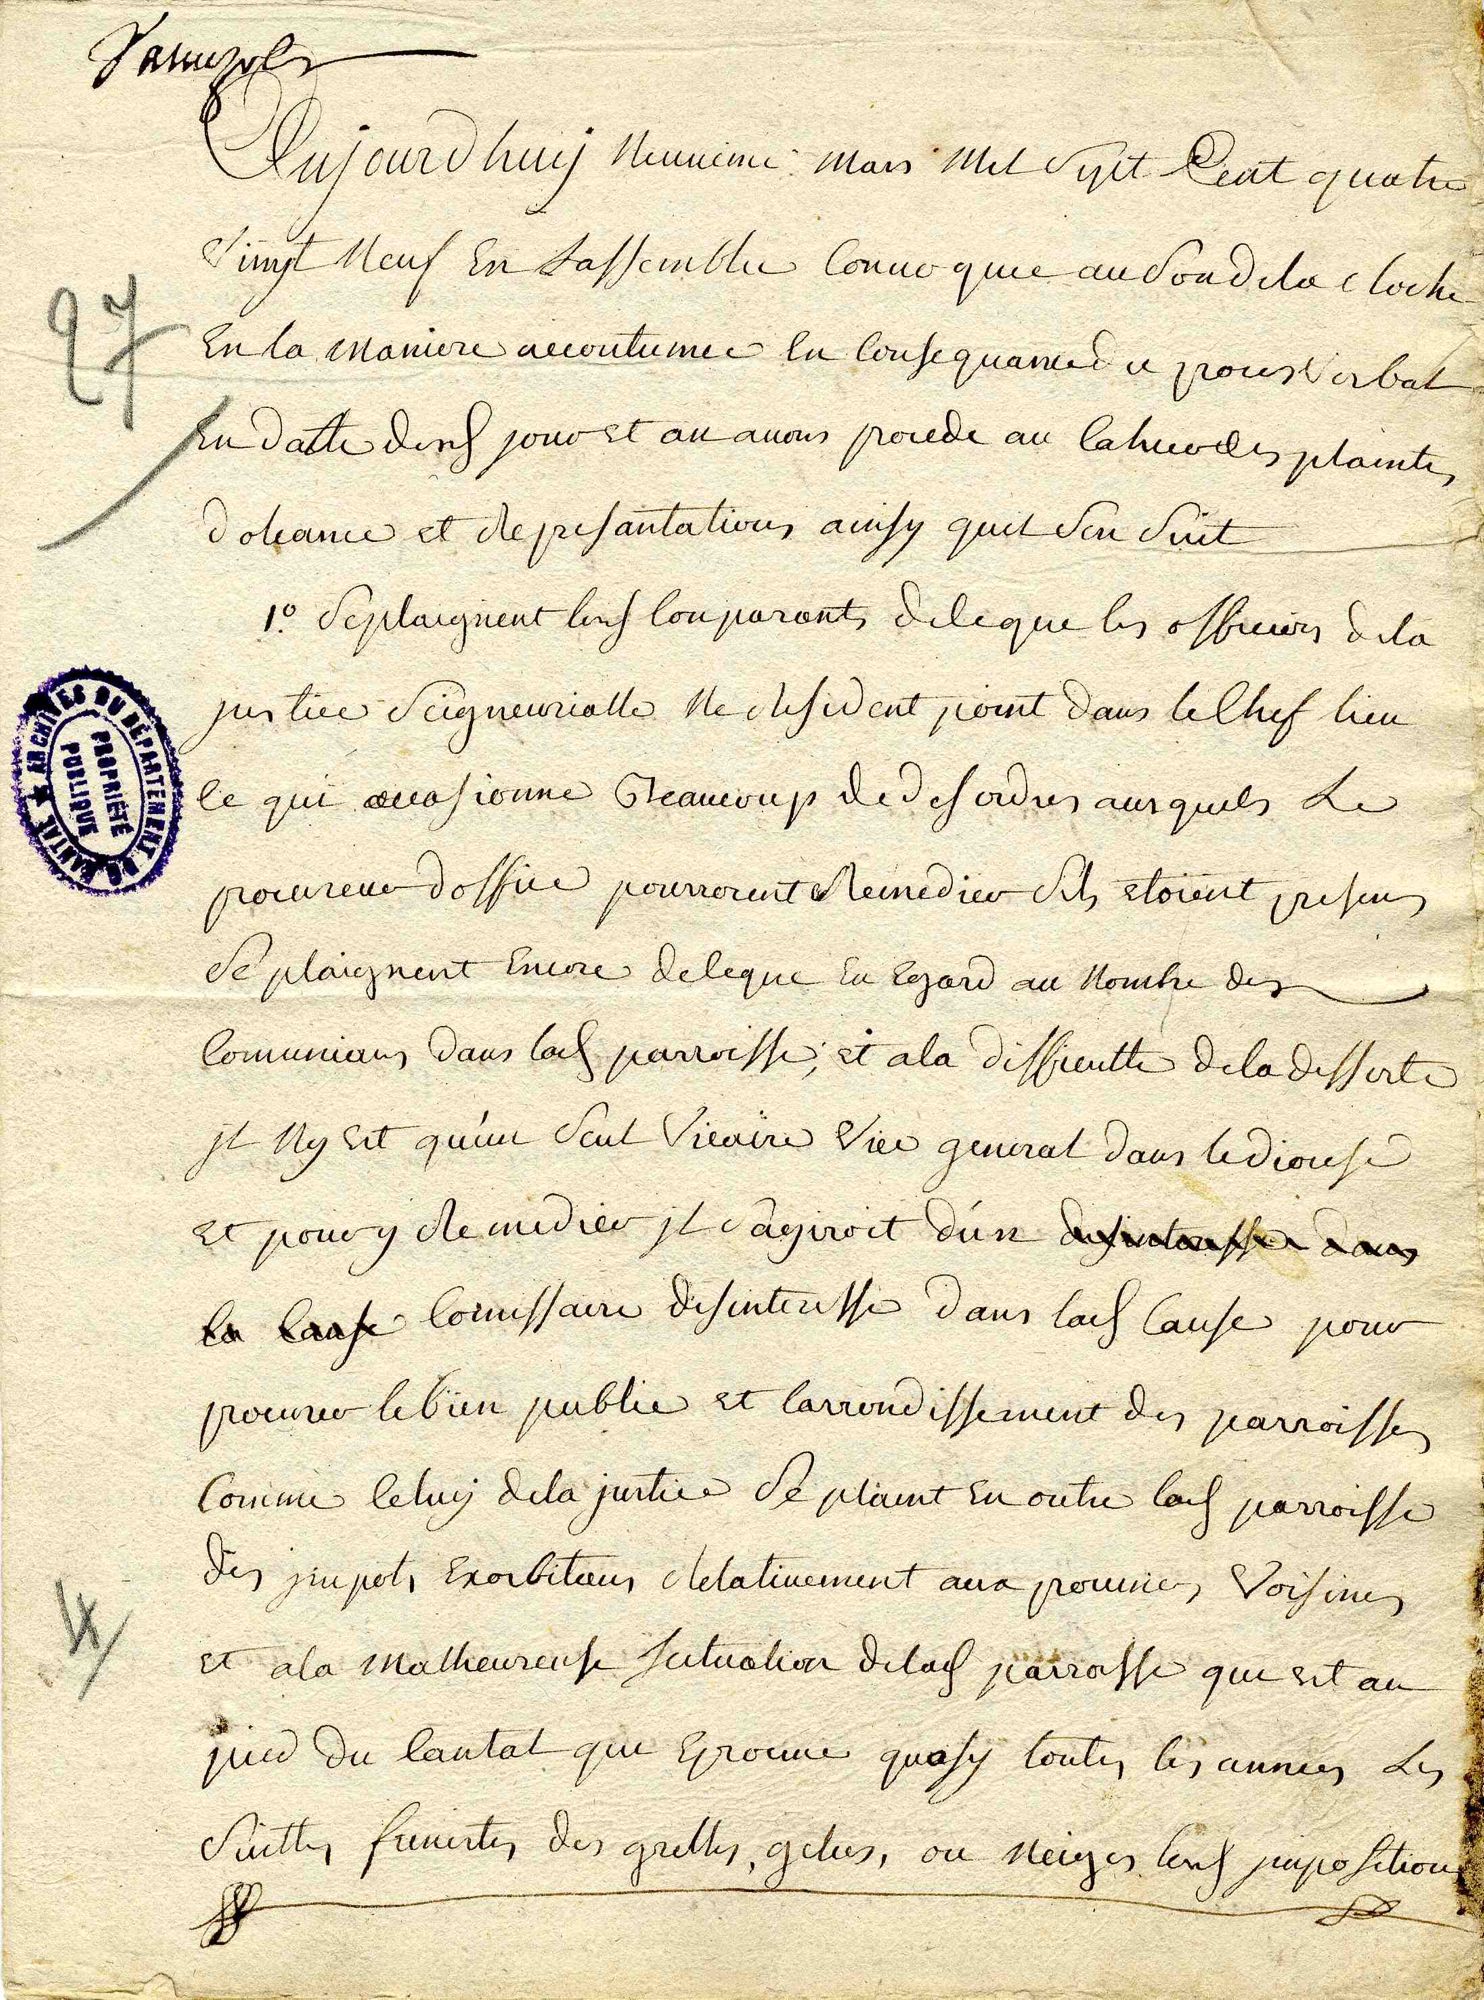 Aujourdhuij neuvieme mars mil sept cent quatre
vingt neuf en Lassemblee convoquee au son de la cloche
en la maniere accoutumee en consequance du proces verbal
en datte desd jour et an avons procede au cahier des plaintes
doleance et representations ainsy quil sen suit
1º se plaignent lesd comparants de ce que les officiers de la
justice seigneurialle ne resident point dans le chef lieu
ce qui occasionne Beaucoup de desordres ausquels Le
procureur doffice pourroient remedier sils etoient presens
se plaignent encore de ce que eu egard au nombre des
comunians dans lad parroisse, et a la difficulte de la desserte
jl ny est qu'un seul vicaire vice general dans le diocese
et pour y remedier jl s'agiroit d'un desinteresse dans
la cause comissaire desinteresse dans lad cause pour
procurer le bien public et larrondissement des parroisses
comme celuy de la justice se plaint en outre lad parroisse
des jmpots exorbitans relativement aux provinces voisines
et a la malheureuse situation de lad parroisse qui est au
pied du cantal qui eprouve quasy toutes les annees Les
suittes funestes des grelles, gelees, ou neiges lesd jmposition
27
4
ARCHIVES DU DÉPARTEMENT DU CANTAL
PROPRIÉTÉ
PUBLIQUE